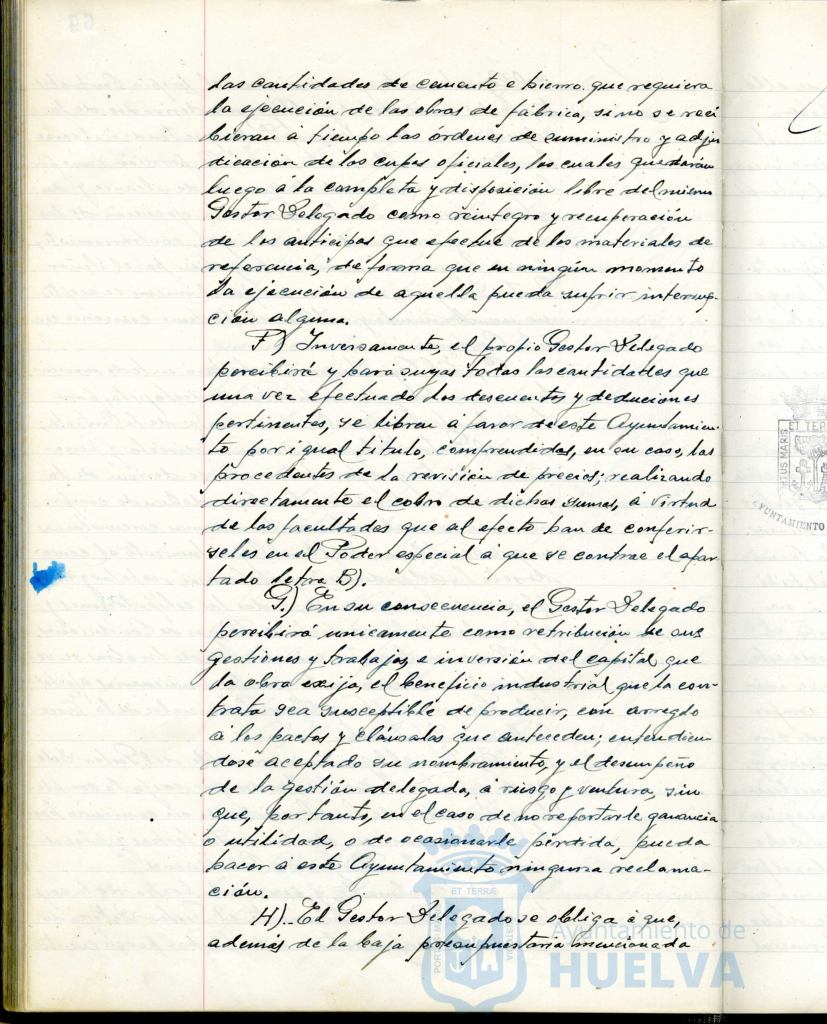 las cantidades de cemento e hierro que requiera
la ejecución de las obras de fábrica, si no se reci
bieran á tiempo las órdenes de suministro y adju
dicación de los cupos oficiales, los cuales quedarán
luego á la completa y disposición libre del mismo
Gestor Delegado como reintegro y recuperación
de los anticipos que efectue de los materiales de
referencia, de forma que en ningún momento
la ejecución de aquella pueda sufrir interrup-
ción alguna.
F) Inversamente, el propio Gestor Delegado
percibirá y hará suyas todas las cantidades que
una vez efectuado los descuentos y deduciones
pertinentes, se libren á favor de este Ayuntamien-
to por igual titulo, comprendidas, en su caso, las
procedentes de la revisión de precios; realizando
directamente el cobro de dichas sumas, á virtud
de las facultades que al efecto han de conferir-
seles en el Poder especial á que se contrae el apar-
tado letra B).
G.) En su consecuencia, el Gestor Delegado
percibirá unicamente como retribución de sus
gestiones y trabajos, e inversión del capital que
la obra exija, el beneficio industrial que la con-
trata sea susceptible de producir, con arreglo
á los pactos y cláusulas que anteceden; entendien-
dose aceptado su nombramiento, y el desempeño
de la gestión delegada, á riesgo y ventura, sin
que, por tanto, en el caso de no reportarle ganancia
o utilidad, o de ocasionarle pérdida, pueda
hacer á este Ayuntamiento ninguna reclama-
ción.
H).. El Gestor Delegado se obliga á que,
además de la baja presupuestaria mencionada
ET TERRÆ
Ayuntamiento de
HUELVA